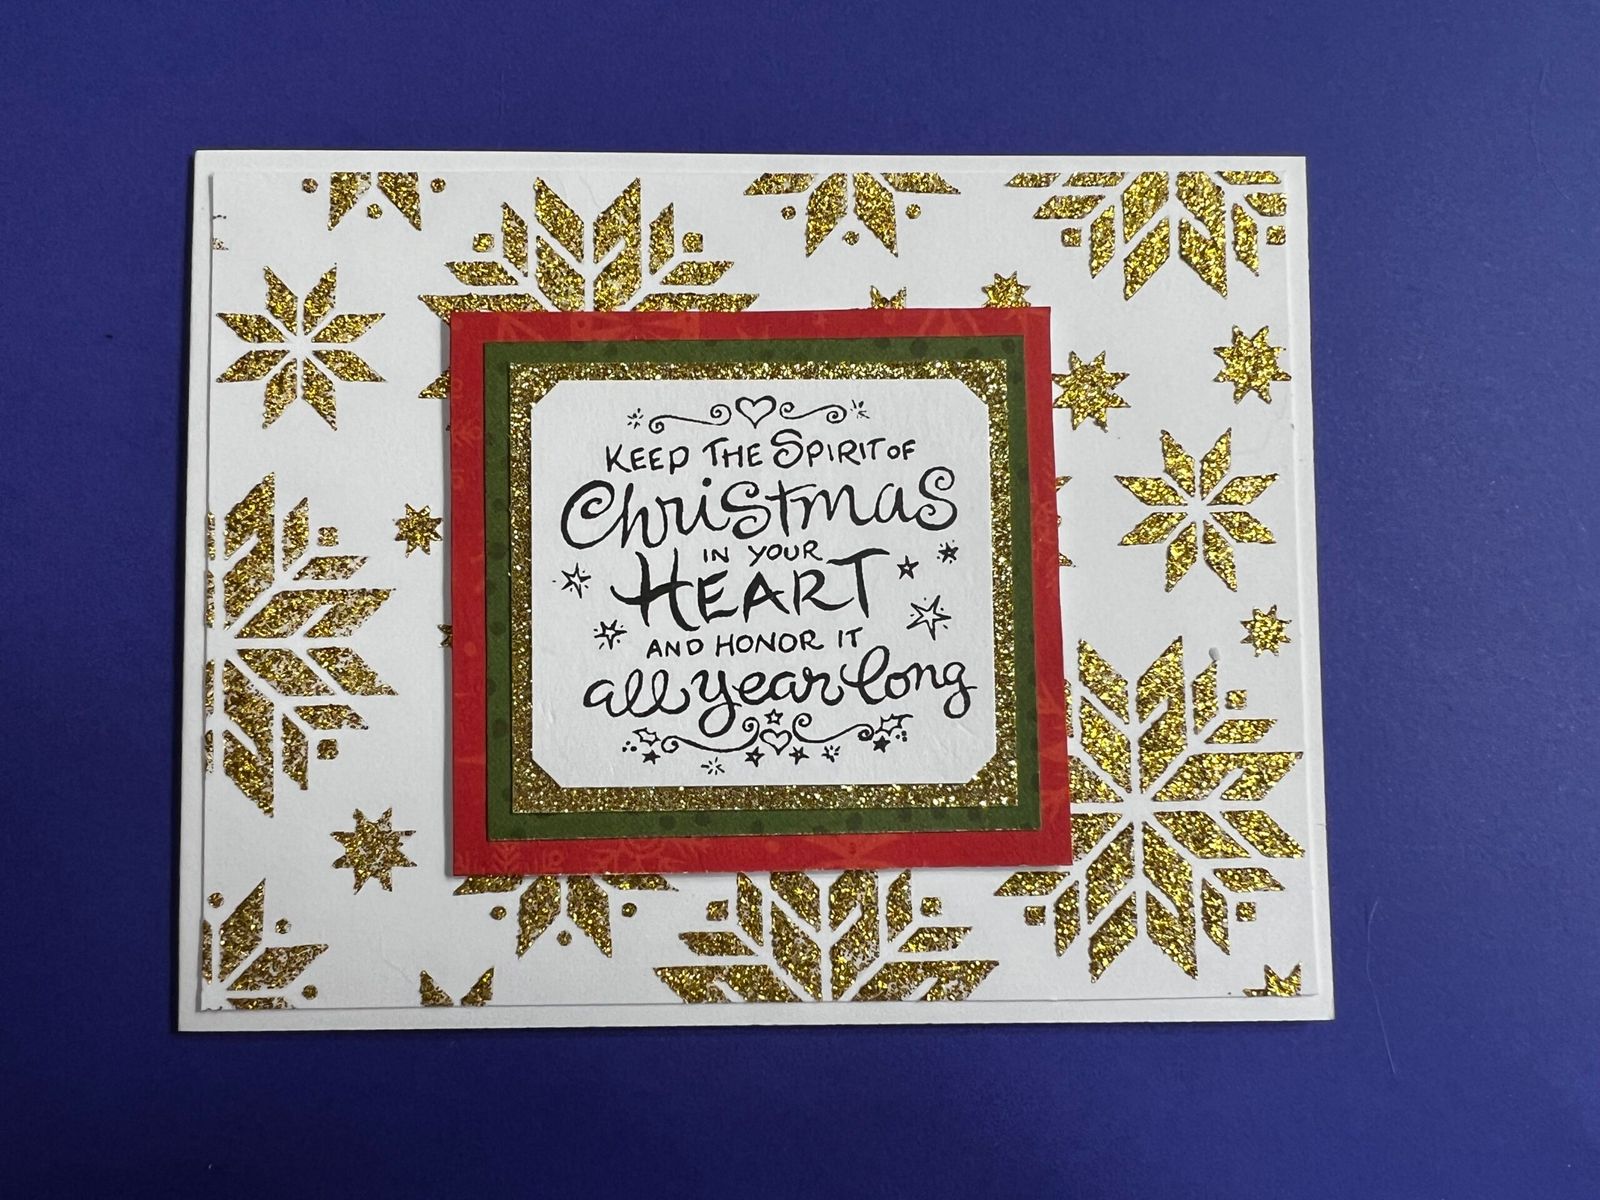 KEEP THE SPIRIT OF
Christmas
IN YOUR
HEART
AND HONOR IT
all year long